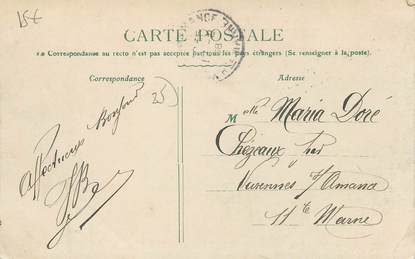 15€
CARTE POSTALE
Correspondance au recto n'est pas acceptée par tous les pays étrangers (Se renseigner à la poste).
Correspondance
Adresse
25
Affectueux Bonjour
Melle Maria Doré
Chézeaux par
Varennes s/Amance
Hte Marne